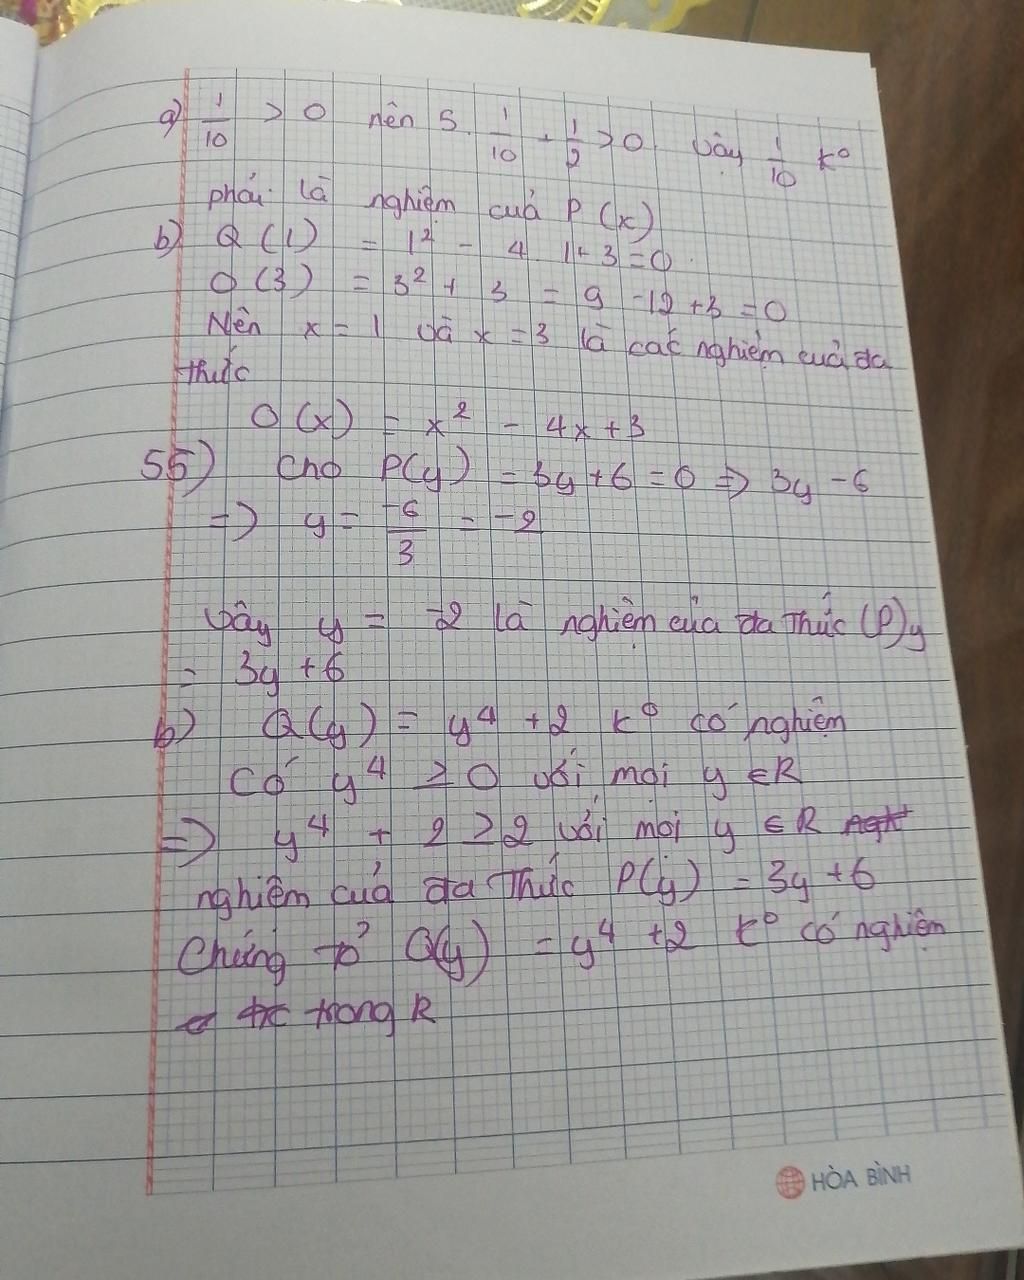 a) 1/10 > 0 nên 5. 1/10 + 1/2 > 0. Vậy 1/10 k°
phải là nghiệm cuả P (x)
b) Q (1) = 1² - 4 1 + 3 = 0.
Q (3) = 3² + 3 = 9 - 12 + 3 = 0
Nên x = 1 và x = 3 là các nghiệm cuả đa
thức
Q (x) = x² - 4x + 3
55) Cho P(y) = 3y + 6 = 0 => 3y - 6
=> y = -6/3 = -2
Vậy y = -2 là nghiệm của đa thức (P)y
= 3y + 6
b) Q(y) = y⁴ + 2 k° có nghiệm
Có y⁴ ≥ 0 với mọi y ∈ R
=> y⁴ + 2 ≥ 2 với mọi y ∈ R
nghiệm cuả đa thức P(y) = 3y + 6
Chứng tỏ Q(y) = y⁴ + 2 k° có nghiệm
trong R
HÒA BÌNH